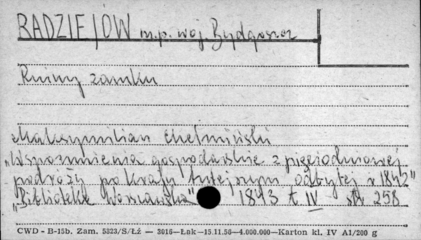 RADZIEJÓW m.p. woj. Bydgoszcz
Ruiny zamku
Maksymilian Chełmiński
„Wspomnienia gospodarskie z pięciodniowej
podróży po kraju tutejszym odbytej r 1842"
„Biblioteka Warszawska" 1843 t. IV str. 258
CWD - B-15b. Zam. 5323/S/Łź — 3015—Łak—15.11.50—4.000.000—Karton kl. IV A1/200 g